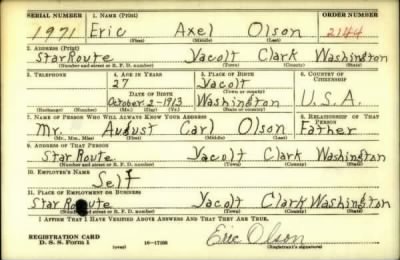 SERIAL NUMBER 1. NAME (Print) ORDER NUMBER
1971 Eric Axel Olson 2144
(First) (Middle) (Last)
2. ADDRESS (Print)
Star Route Yacolt Clark Washington
(Number and street or R. F. D. number) (Town) (County) (State)
3. TELEPHONE 4. AGE IN YEARS 5. PLACE OF BIRTH 6. COUNTRY OF CITIZENSHIP
27 Yacolt
DATE OF BIRTH (Town or county)
October-2-1913 Washington U.S.A.
(Exchange) (Number) (Mo.) (Day) (Yr.) (State or country)
7. NAME OF PERSON WHO WILL ALWAYS KNOW YOUR ADDRESS 8. RELATIONSHIP OF THAT PERSON
Mr. August Carl Olson Father
(Mr., Mrs., Miss) (First) (Middle) (Last)
9. ADDRESS OF THAT PERSON
Star Route Yacolt Clark Washington
(Number and street or R. F. D. number) (Town) (County) (State)
10. EMPLOYER'S NAME
Self
11. PLACE OF EMPLOYMENT OR BUSINESS
Star Route Yacolt Clark Washington
(Number and street or R. F. D. number) (Town) (County) (State)
I AFFIRM THAT I HAVE VERIFIED ABOVE ANSWERS AND THAT THEY ARE TRUE.
REGISTRATION CARD
D. S. S. Form 1 (over) 16—17105 Eric Olson
(Registrant's signature)